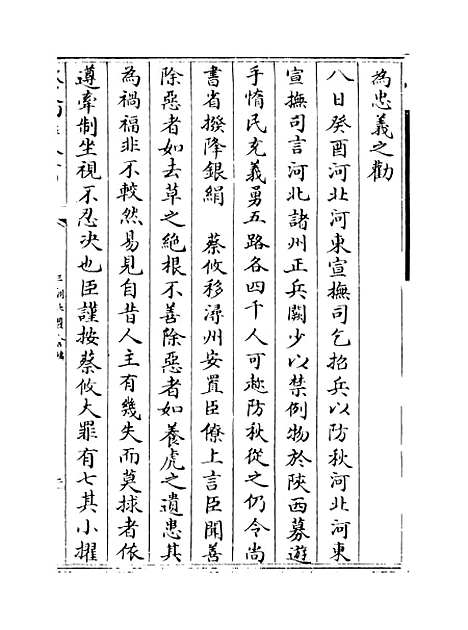 為忠義之勸
八日癸酉河北河東宣撫司乞招兵以防秋河北河東
宣撫司言河北諸州正兵闕少以禁例物於陝西募遊
手惰民充義勇五路各四千人可趂防秋從之仍令尚
書省撥降銀絹　蔡攸移潯州安置臣僚上言臣聞善
除惡者如去草之絶根不善除惡者如養虎之遺患其
為禍福非不較然易見自昔人主有幾失而莫捄者依
遵牽制坐視不忍決也臣謹按蔡攸大罪有七其小擢
三朝北盟會編